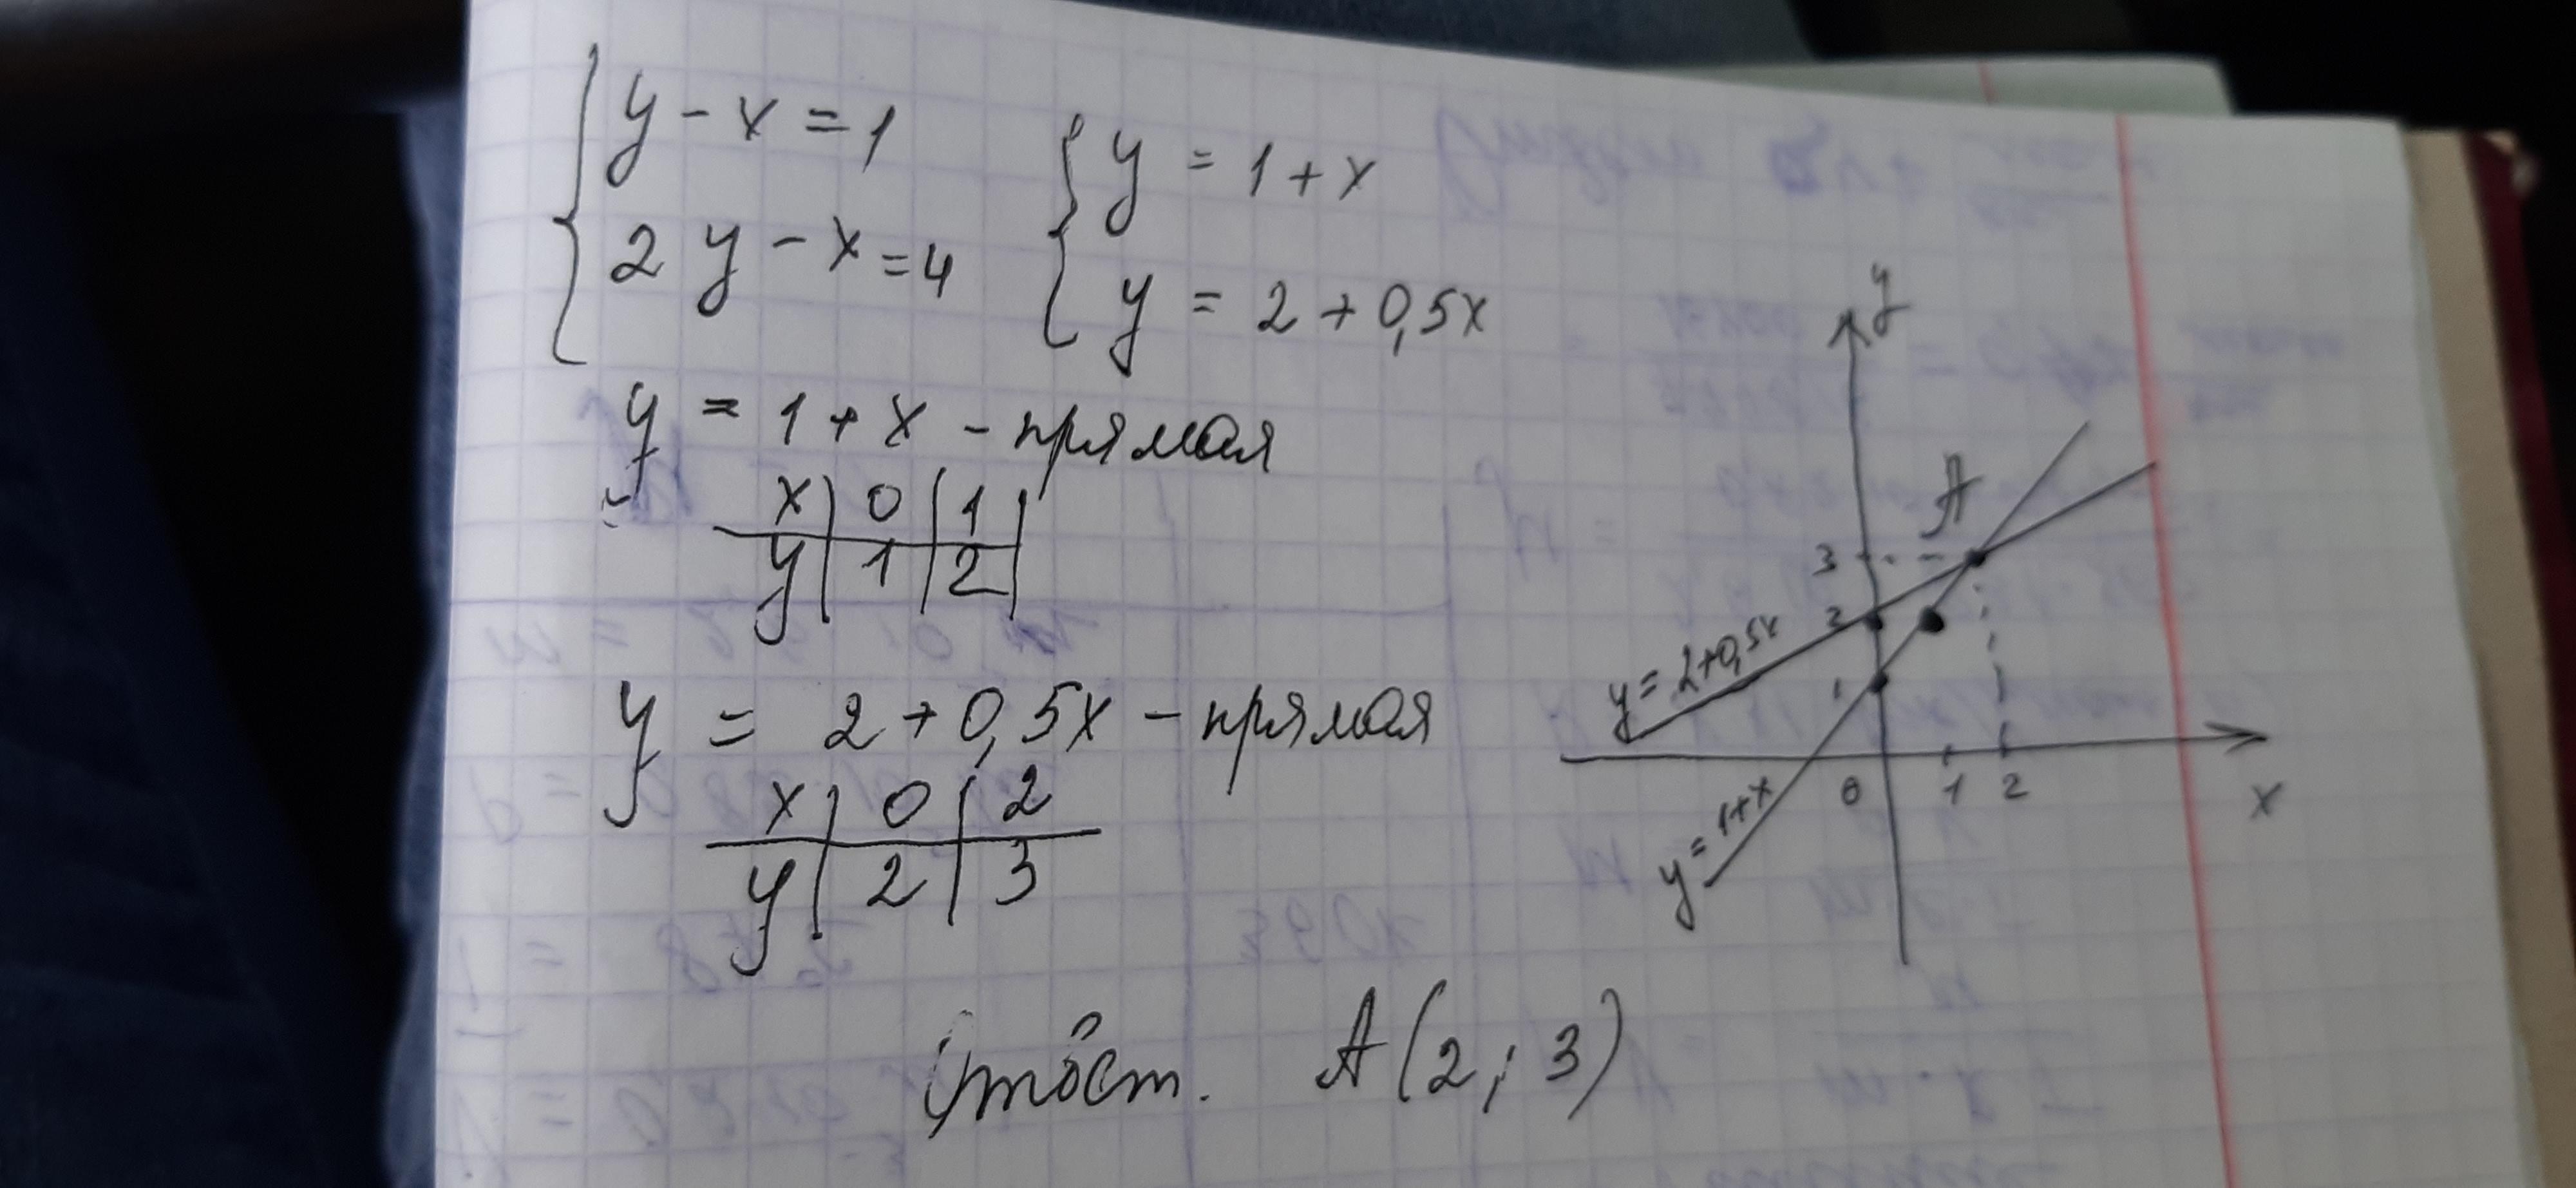 y - x = 1
2y - x = 4
y = 1 + x
y = 2 + 0,5x
y = 1 + x - прямая
x | 0 | 1
y | 1 | 2
y = 2 + 0,5x - прямая
x | 0 | 2
y | 2 | 3
y
A
3
2
1
y = 2+0,5x
0 1 2
x
y = 1+x
A(2; 3)